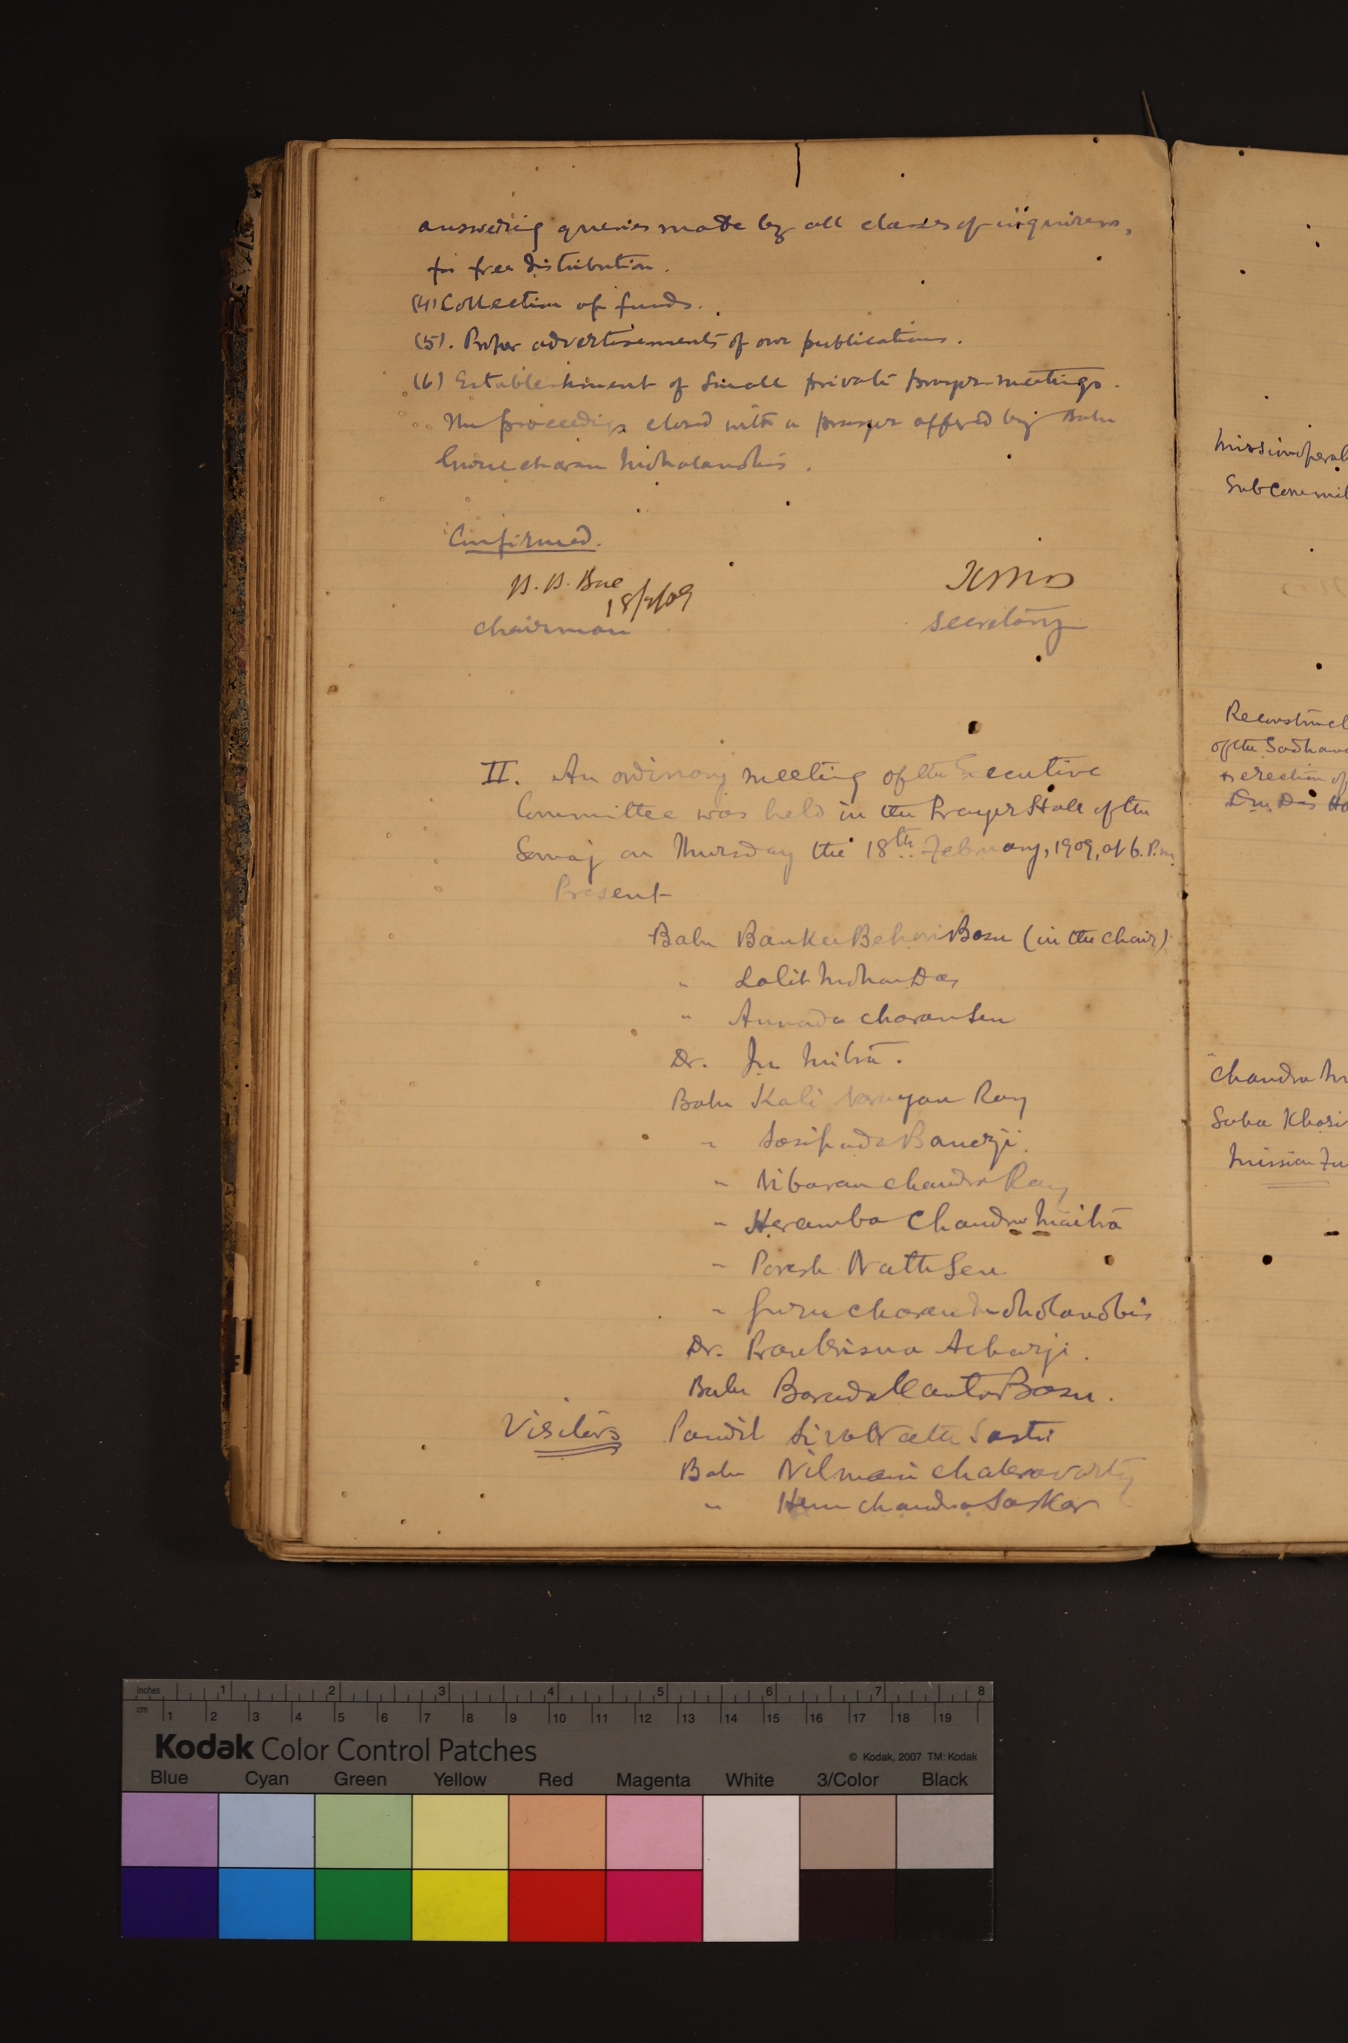 answering queries made by all classes of inquirers,
for free distribution.
(4) Collection of funds.
(5). Proper advertisements of our publications.
(6) Establishment of Small private prayer-meetings.
The proceedings closed with a prayer offered by Babu
Guru charan Moholanobis.
Confirmed.
B. B. Bose
18/2/09
chairman
secretary
II. An ordinary meeting of the Executive
Committee was held in the Prayer Hall of the
Samaj on Thursday the 18th February, 1909, at 6. P.m.
Present
Babu Banku Behari Bosu (in the chair)
" Lalit Mohan Das
" Annada charan Sen
Dr. Mitra.
Babu Kali Narayan Ray
" Sasipada Banerji.
" Nibaran chandra Ray
" Heramba Chandra Maitra
" Poresh Nath Sen
" Guru charan Moholanobis
Dr. Prankrisna Acharji.
Babu Barada Kanta Bosu.
Visitors Pandit Sivanath Sastri
Babu Nilmani chakravarty
" Hem chandra Sarkar
Subcommit
Reconstruct
of the Sadhana
& erection of
Das
chandra
Mission Fu
inches 1 2 3 4 5 6 7 8
cm 1 2 3 4 5 6 7 8 9 10 11 12 13 14 15 16 17 18 19
Kodak Color Control Patches
© Kodak, 2007 TM: Kodak
Blue Cyan Green Yellow Red Magenta White 3/Color Black